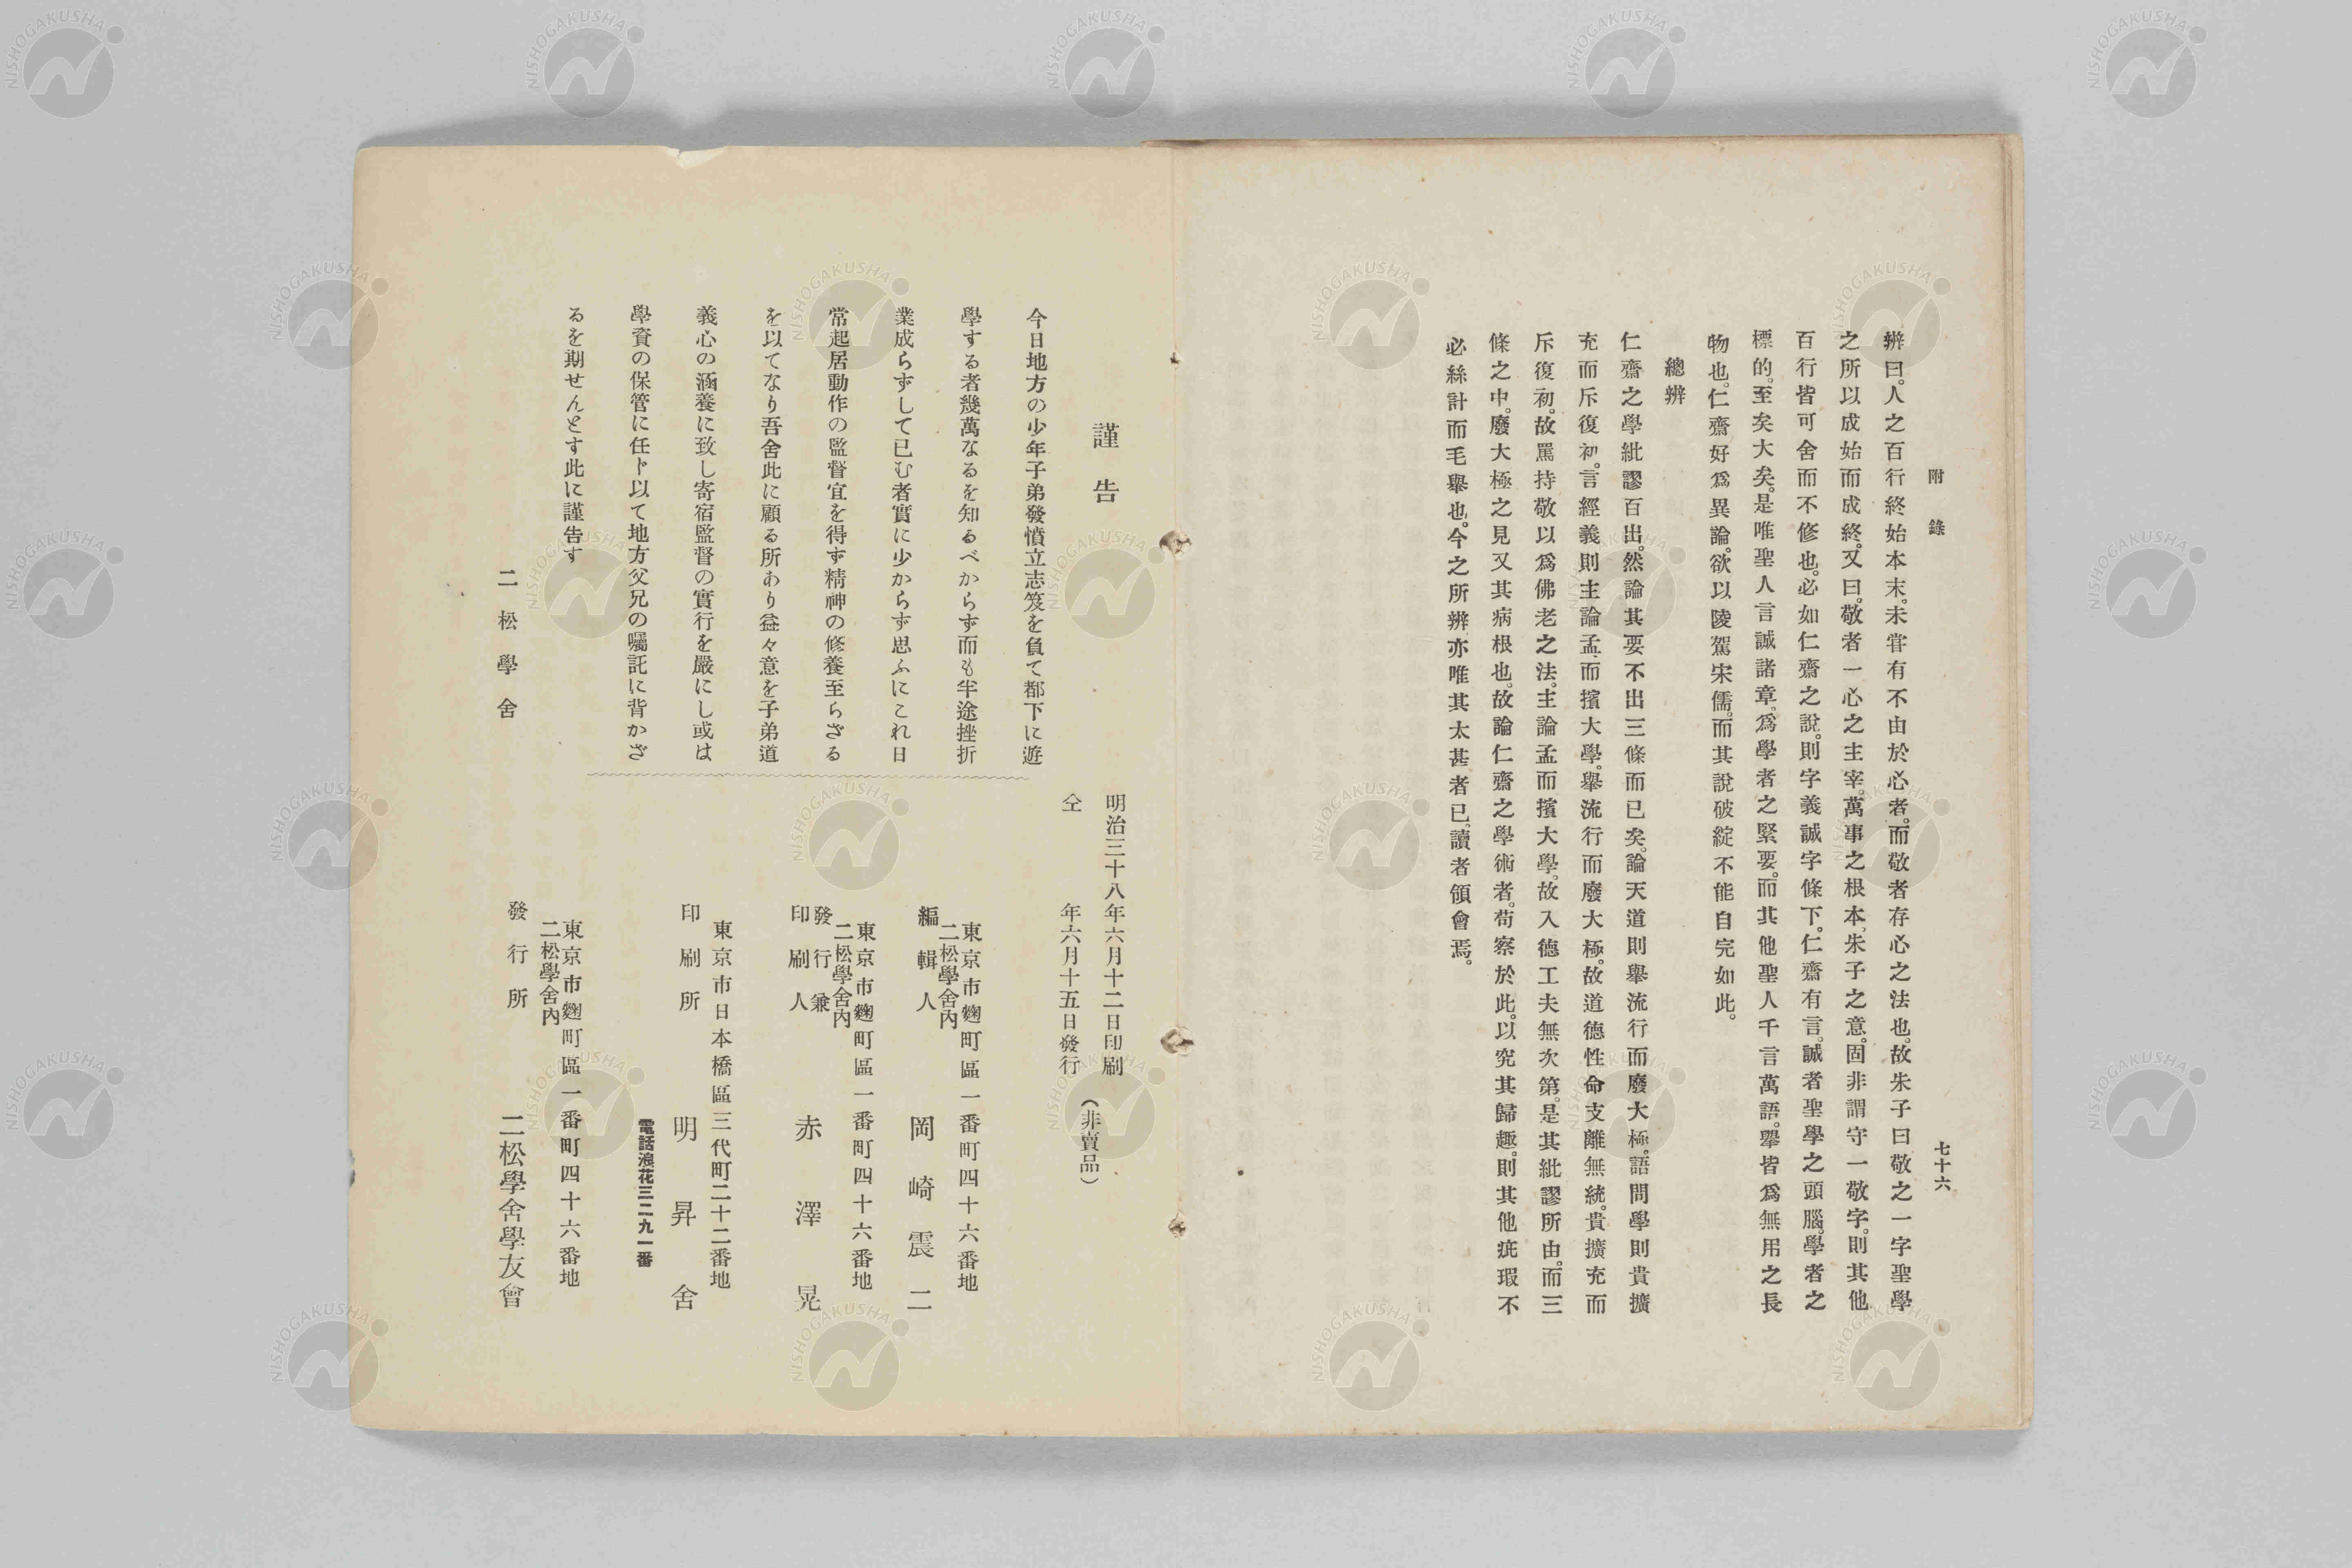 附錄
七十六
辨曰。人之百行終始本末。未甞有不由於必者。而敬者存心之法也。故朱子曰敬之一字聖學
之所以成始而成終。又曰。敬者一心之主宰。萬事之根本。朱子之意。固非謂守一敬字。則其他
百行皆可舍而不修也。必如仁齋之說。則字義誠字條下。仁齋有言。誠者聖學之頭腦。學者之
標的。至矣大矣。是唯聖人言誠諸章。爲學者之緊要。而其他聖人千言萬語。擧皆爲無用之長
物也。仁齋好爲異論。欲以陵駕宋儒。而其說破綻不能自完如此。
總辨
仁齋之學紕謬百出。然論其要不出三條而已矣。論天道則擧流行而廢大極。語問學則貴擴
充而斥復初。言經義則主論孟而擯大學。擧流行而廢大極。故道德性命支離無統。貴擴充而
斥復初。故罵持敬以爲佛老之法。主論孟而擯大學。故入德工夫無次第。是其紕謬所由。而三
條之中。廢大極之見又其病根也。故論仁齋之學術者。苟察於此。以究其歸趣。則其他疵瑕不
必絲計而毛擧也。今之所辨亦唯其太甚者已。讀者領會焉。
謹告
今日地方の少年子弟發憤立志笈を負て都下に遊
學する者幾萬なるを知るべからず而も半途挫折
業成らずして已む者實に少からず思ふにこれ日
常起居動作の監督宜を得ず精神の修養至らざる
を以てなり吾舍此に顧る所あり益々意を子弟道
義心の涵養に致し寄宿監督の實行を嚴にし或は
學資の保管に任ド以て地方父兄の囑託に背かざ
るを期せんとす此に謹告す
二松學舍
明治三十八年六月十二日印刷
仝年六月十五日發行
（非賣品）
東京市麴町區一番町四十六番地
二松學舍內
編輯人 岡崎震二
東京市麴町區一番町四十六番地
二松學舍內
發行兼
印刷人 赤澤晃
東京市日本橋區三代町二十二番地
印刷所 明昇舍
電話浪花三二九一番
東京市麴町區一番町四十六番地
二松學舍內
發行所 二松學舍學友會
NISHOGAKUSHA